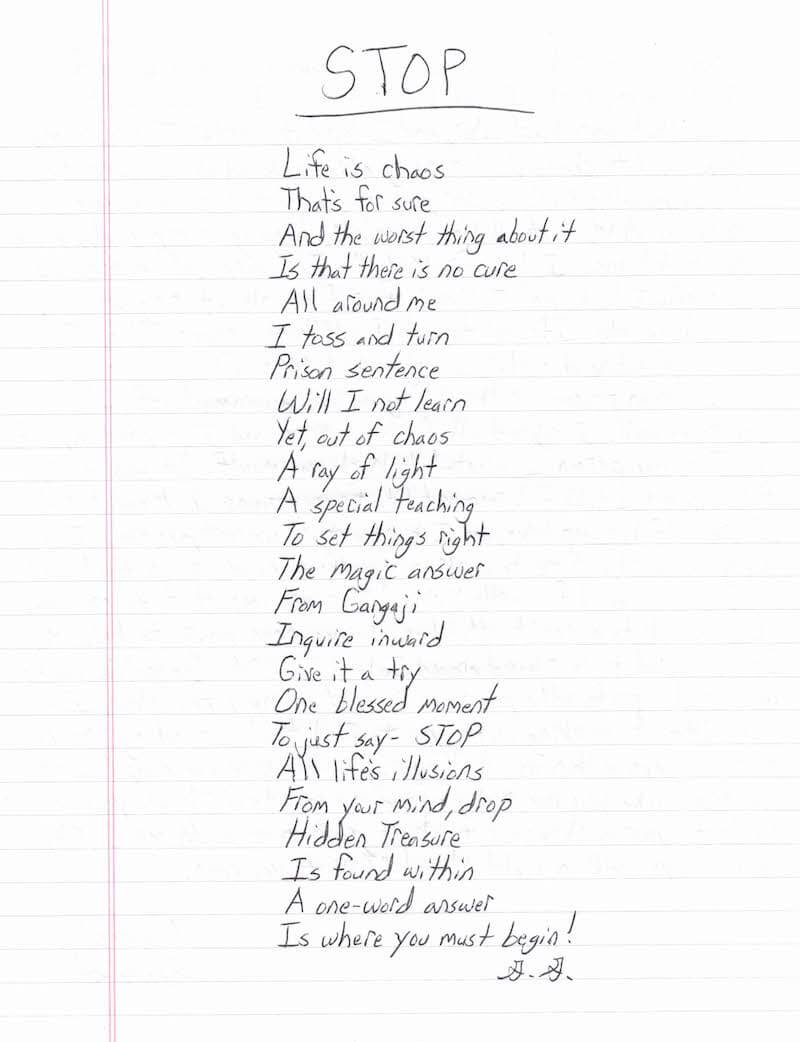 STOP
Life is chaos
That's for sure
And the worst thing about it
Is that there is no cure
All around me
I toss and turn
Prison sentence
Will I not learn
Yet, out of chaos
A ray of light
A special teaching
To set things right
The magic answer
From Gangaji
Inquire inward
Give it a try
One blessed moment
To just say- STOP
All life's illusions
From your mind, drop
Hidden Treasure
Is found within
A one-word answer
Is where you must begin!